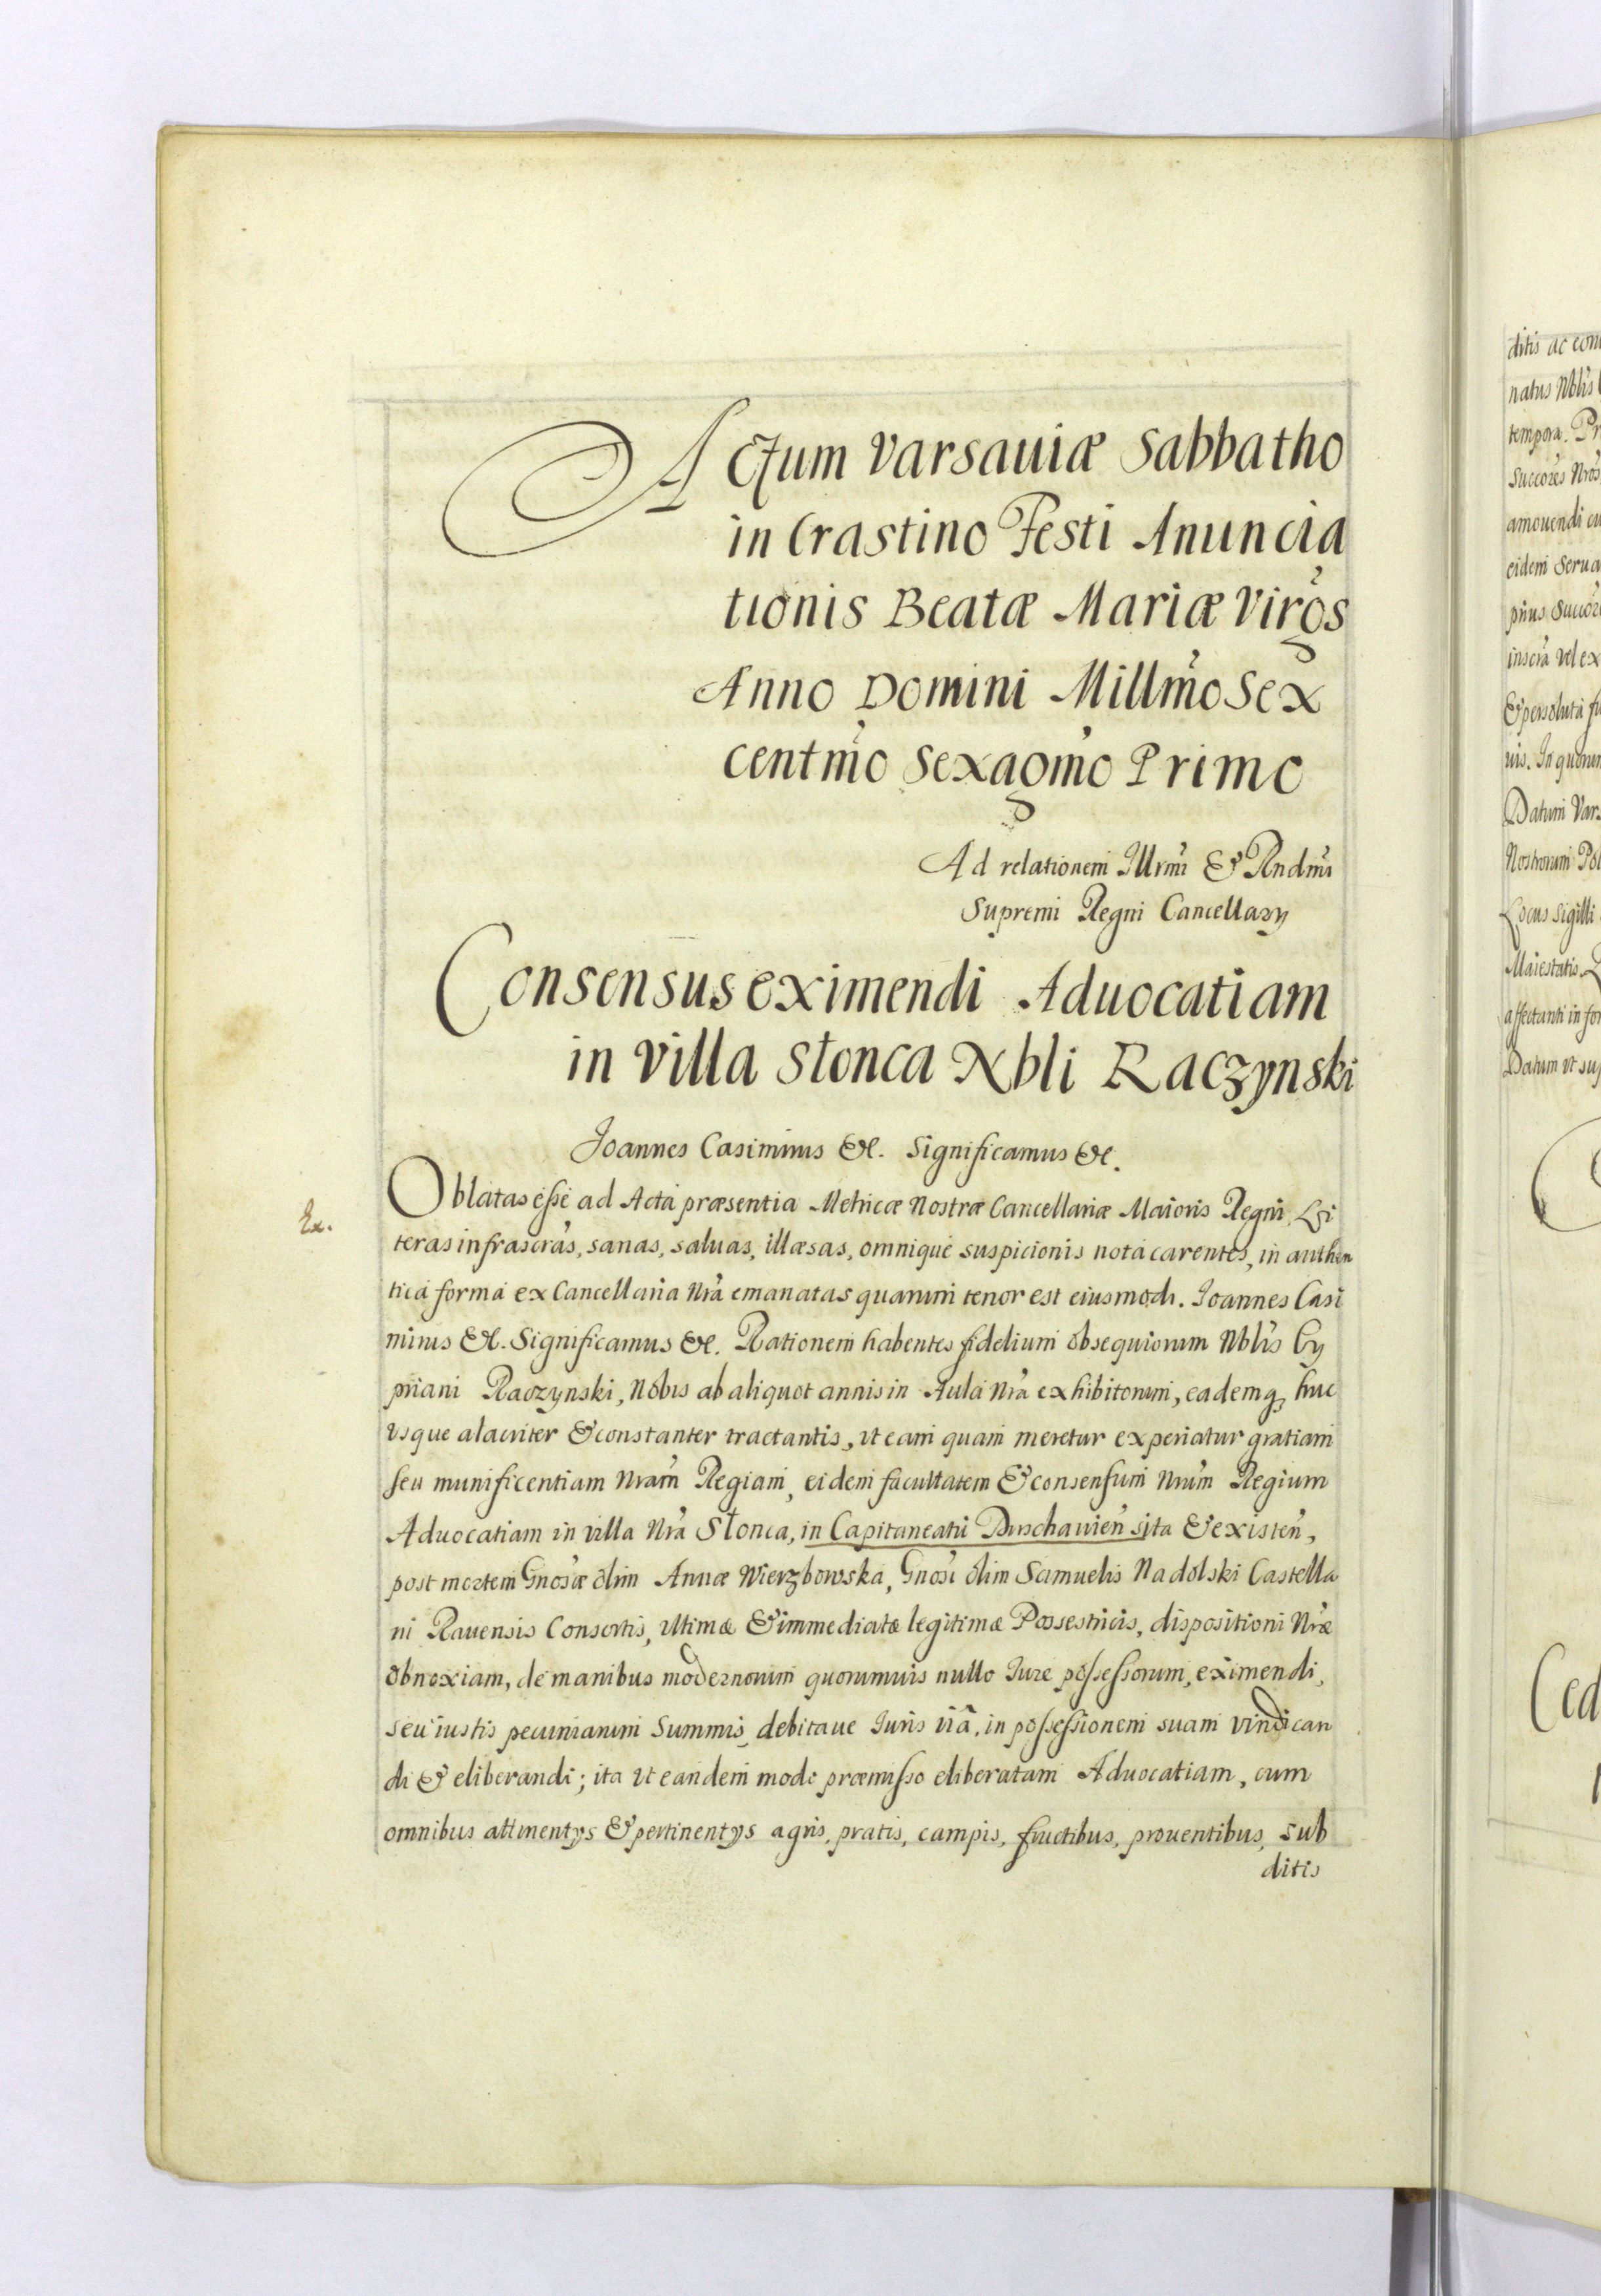 Actum Varsauiæ Sabbatho
in Crastino Festi Anuncia
tionis Beatæ Mariæ Virgs
Anno Domini Millmo Sex
centmo Sexagmo Primo
Ad relationem Illrmi & Rndmi
Supremi Regni Cancellarÿ
Consensus eximendi Aduocatiam
in Villa Słonca Nbli Raczynski
Joannes Casimirus &c. Significamus &c.
Ex.
Oblatas esse ad Acta præsentia Metricæ Nostræ Cancellariæ Maioris Regni, Lŕi
teras infrascras, sanas, saluas, illæsas, omnique suspicionis nota carentes, in authen
tica forma ex Cancellaria Nra emanatas quarum tenor est eiusmodi. Joannes Casi
mirus &c. Significamus &c. Rationem habentes fidelium obsequiorum Nblis Cy
priani Raczynski, Nobis ab aliquot annis in Aula Nra exhibitorum, eademq, huc
vsque alacriter & constanter tractantis, vt eam quam meretur experiatur gratiam
seu munificentiam Nram Regiam, eidem facultatem & consensum Nrum Regium
Aduocatiam in villa Nra Słonca, in Capitaneatu Dirschauien sita & existen,
post mortem Gnosæ olim Annæ Wierzbowska, Gnosi olim Samuelis Nadolski Castella
ni Rauensis Consortis, vltimæ & immediatæ legitimæ Possestricis, dispositioni Nræ
obnoxiam, de manibus modernorum quorumuis nullo Jure possessorum, eximendi,
seu iustis pecuniarum Summis, debitaue Juris via, in possessionem suam vindican
di & eliberandi; ita vt eandem modo præmisso eliberatam Aduocatiam, cum
omnibus attinentÿs & pertinentÿs agris, pratis, campis, fructibus, prouentibus, sub
ditis
ditis ac com
natus Nblis
tempora. Pr
Succores Nros
amouendi
eidem Serua
pnus Succor
inscra vel ex
& persoluta
uis. In quorum
Datum Vars
Nostrorum Pol
Locus Sigilli
Maiestatis
affectanti in for
Datum vt sup
Ced